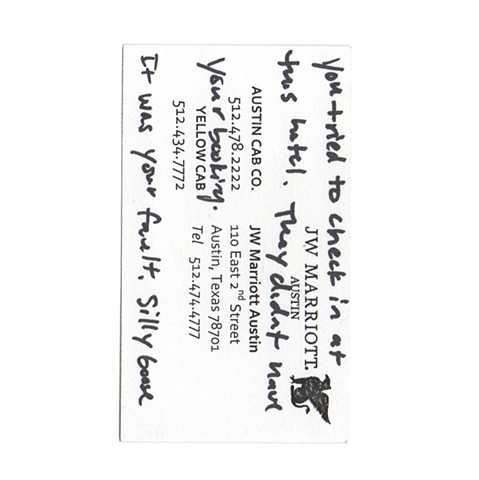 You tried to check in at
this hotel. They didnt have
your booking.
It was your fault. Silly goose
JW MARRIOTT.
AUSTIN
AUSTIN CAB CO.
512.478.2222
YELLOW CAB
512.434.7772
JW Marriott Austin
110 East 2nd Street
Austin, Texas 78701
Tel 512.474.4777